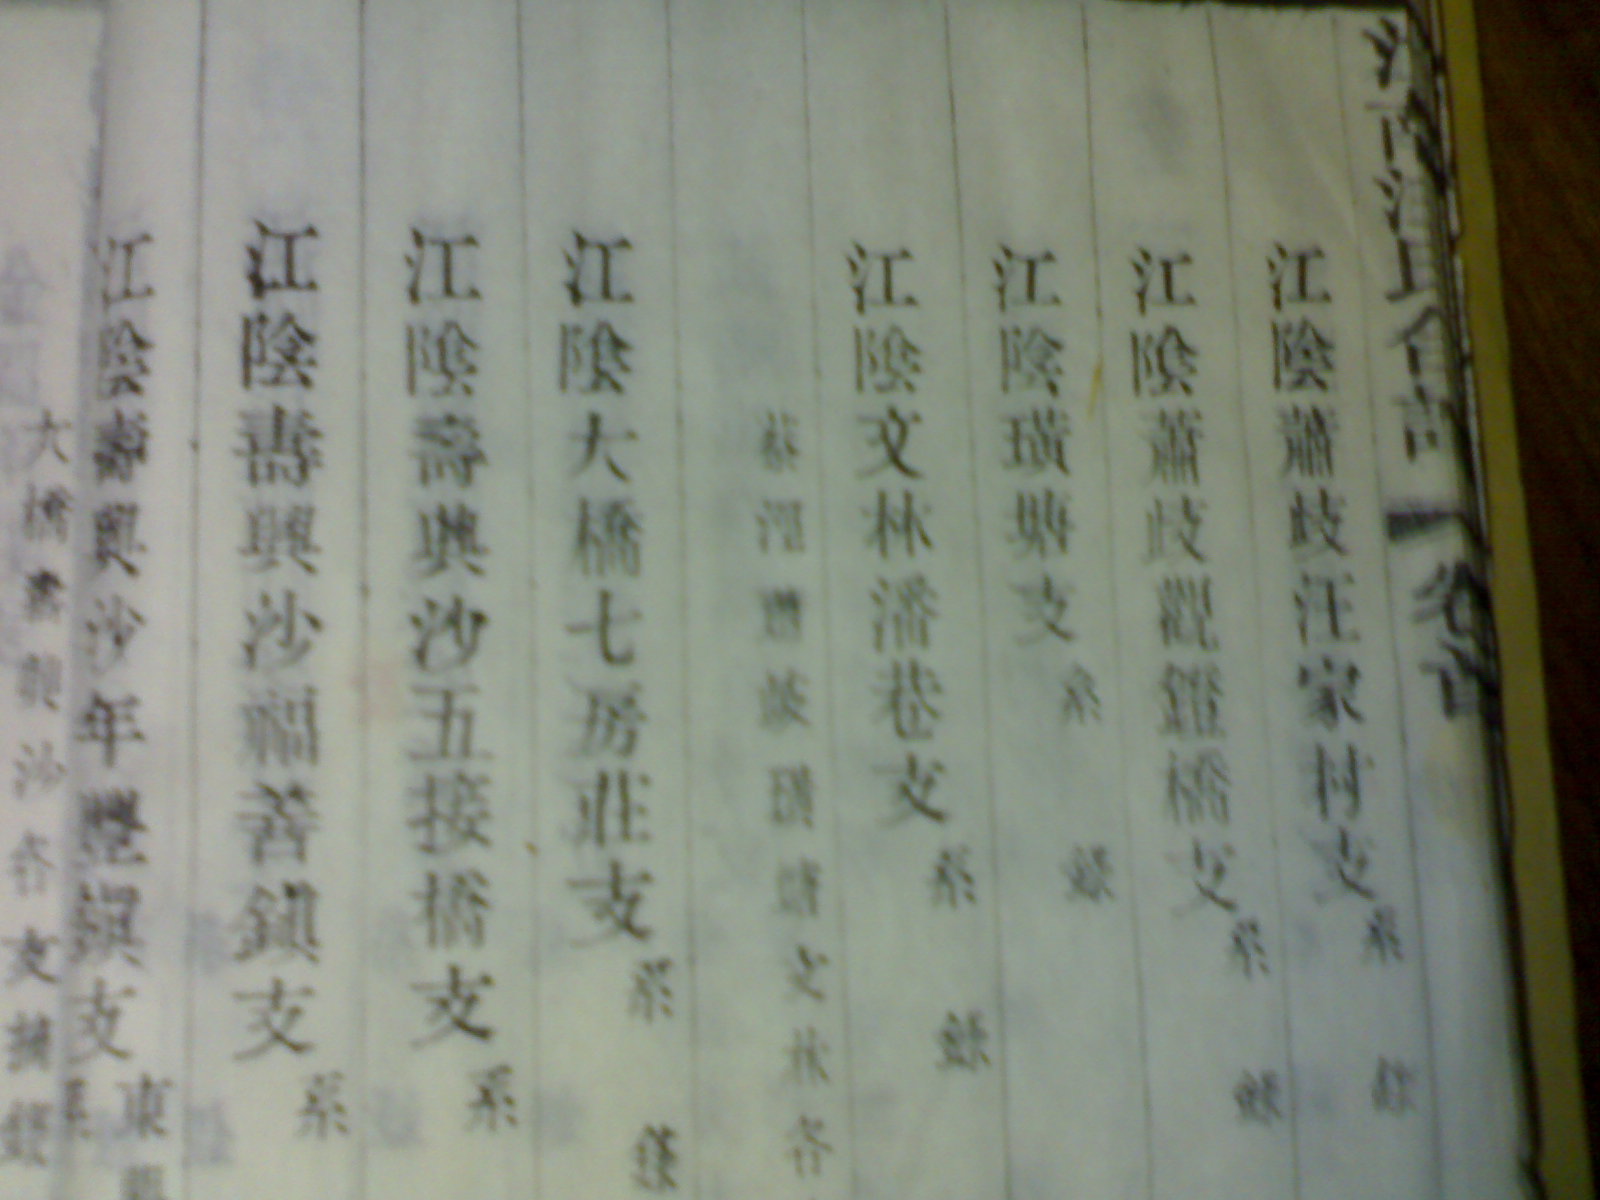 卷首
江陰蕭歧汪家村支系 錄
江陰蕭歧觀鐙橋支系 錄
江陰璜塘支系 錄
江陰文林潘巷支系 錄
璜塘文林各
江陰大橋七房莊支系 錄
江陰壽興沙五接橋支系
江陰壽興沙福善鎮支系
江陰壽興沙年豐鎮支 東
大橋壽興沙各支